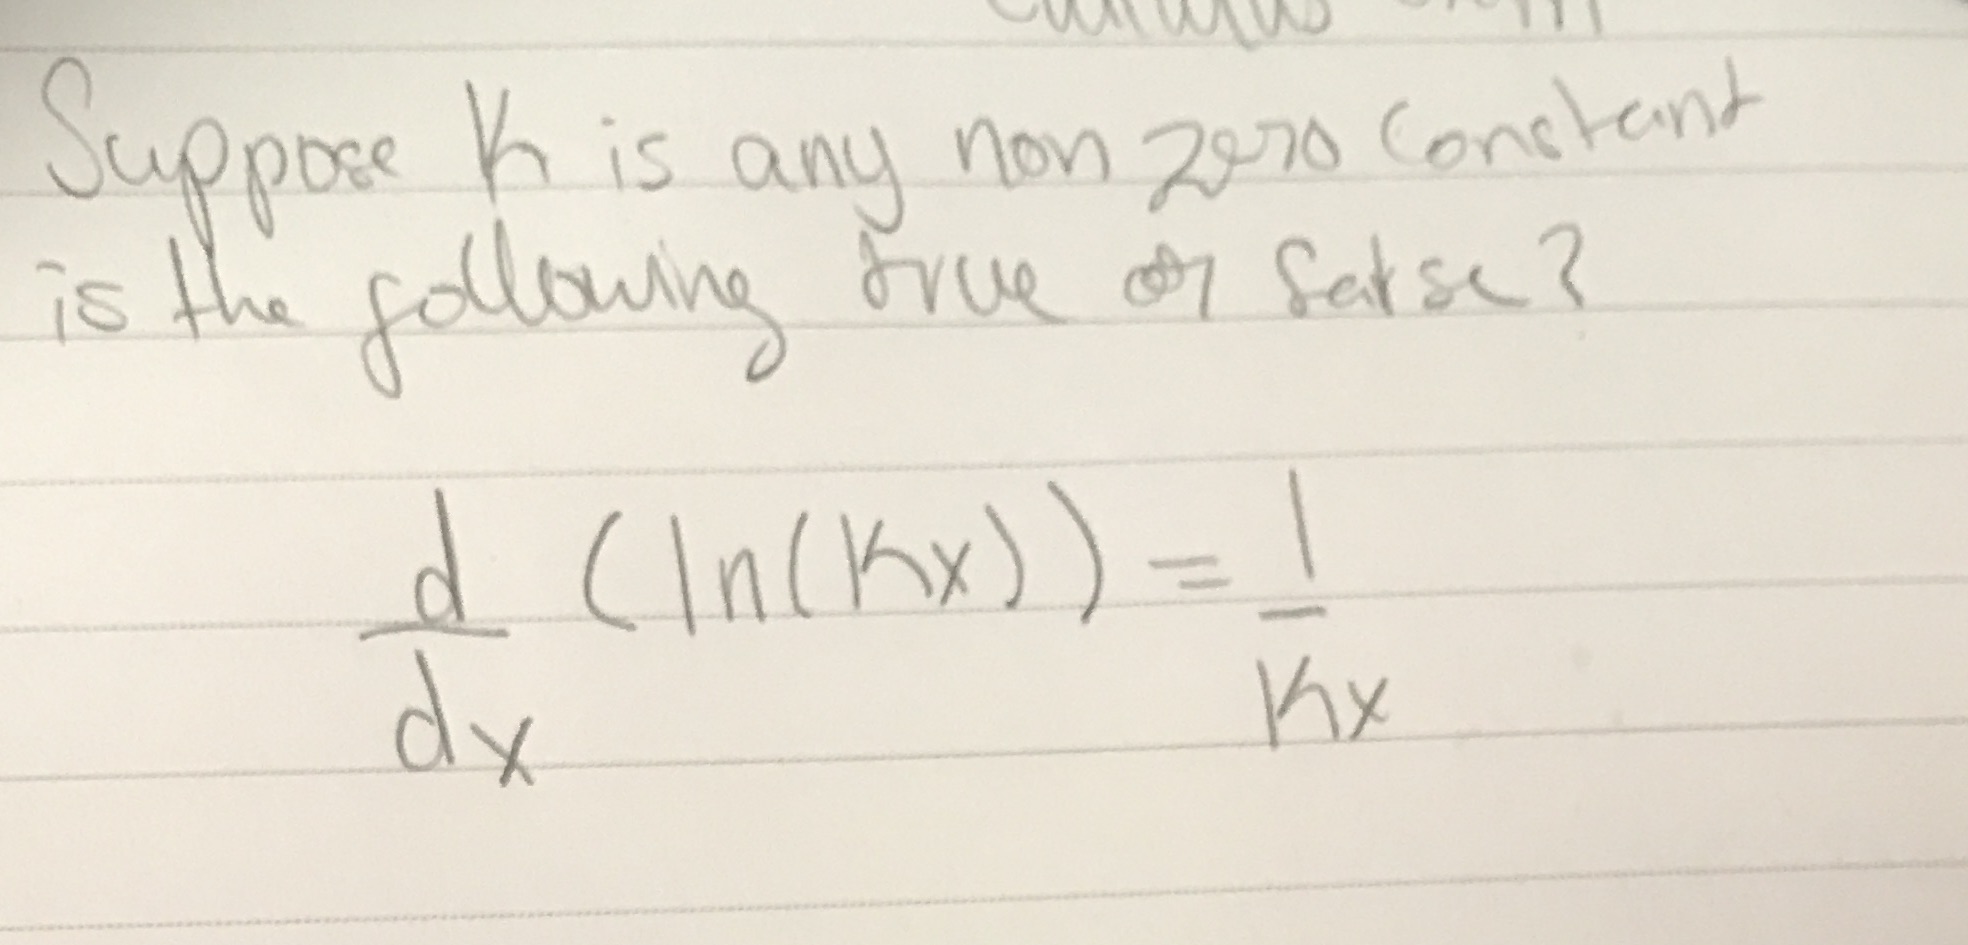 Suppose K is any non zero constant
is the following true or false?
d/dx (ln(Kx)) = 1/Kx